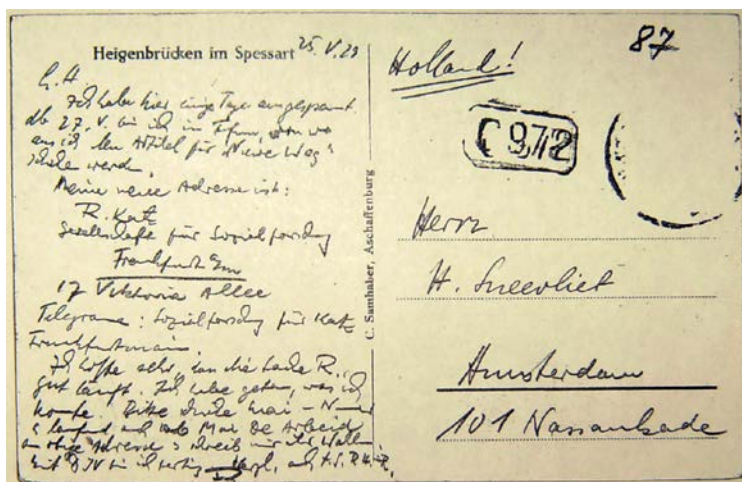 Heigenbrücken im Spessart 25.V.29
L. H.
Ich habe hier einige Tage ausgespannt.
Ab 27. V. bin ich in Ffm, von wo
aus ich den Artikel für "Nieuwe Weg"
senden werde.
Meine neue Adresse ist:
R. Katz
Gesellschaft für Sozialforschung
Frankfurt a/m
17 Viktoria Allee
Telegramme: Sozialforschg für Katz
Frankfurtmain
Ich hoffe sehr, dass die Sache R.
gut läuft. Ich habe getan, was ich
konnte. Bitte sende Mai-Nummer
laufend auch ab Mai De Arbeid
an obige Adresse
Mit bin ich fertig
C. Samhaber, Aschaffenburg
Holland!
87
C 972
Herrn
H. Sneevliet
Amsterdam
101 Nassaukade